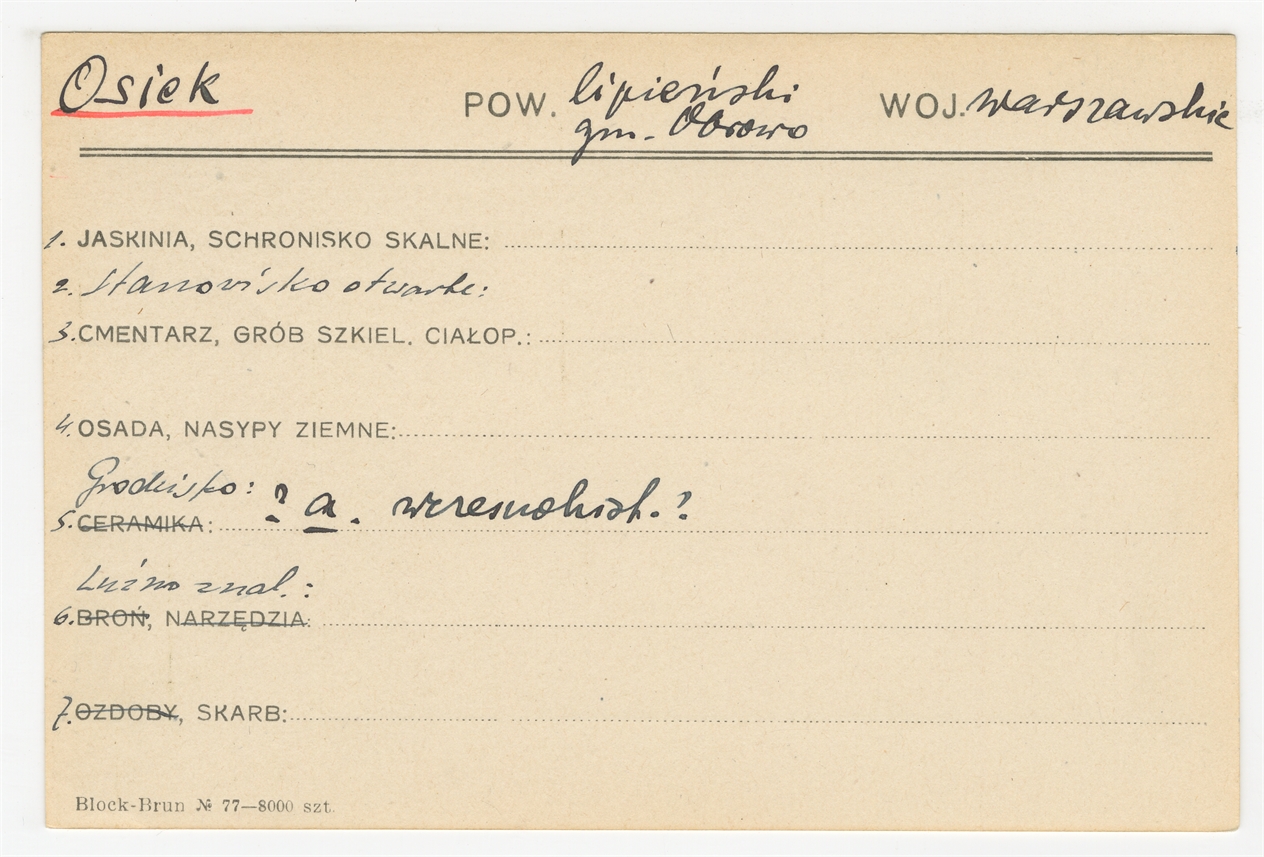 Osiek POW. lipieński WOJ. warszawskie
gm. Obrowo
1. JASKINIA, SCHRONISKO SKALNE:
2. Stanowisko otwarte:
3. CMENTARZ, GRÓB SZKIEL. CIAŁOP.:
4. OSADA, NASYPY ZIEMNE:
Grodzisko: ? a. wczesnohist.?
5. CERAMIKA:
Luźno znal.:
6. BROŃ, NARZĘDZIA:
7. OZDOBY, SKARB:
Block-Brun № 77—8000 szt.